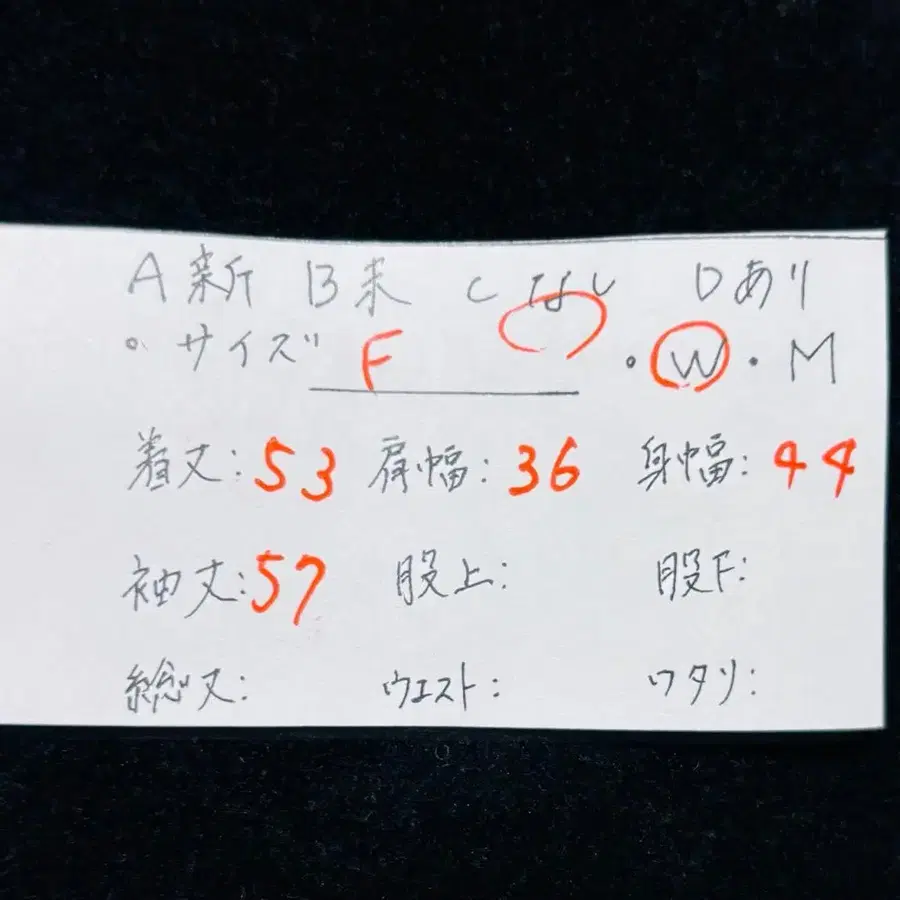 A新 B未 Cなし Dあり
・サイズ F ・W・M
着丈:53 肩幅:36 身幅:44
袖丈:57 股上: 股下:
総丈: ウエスト: ワタリ: